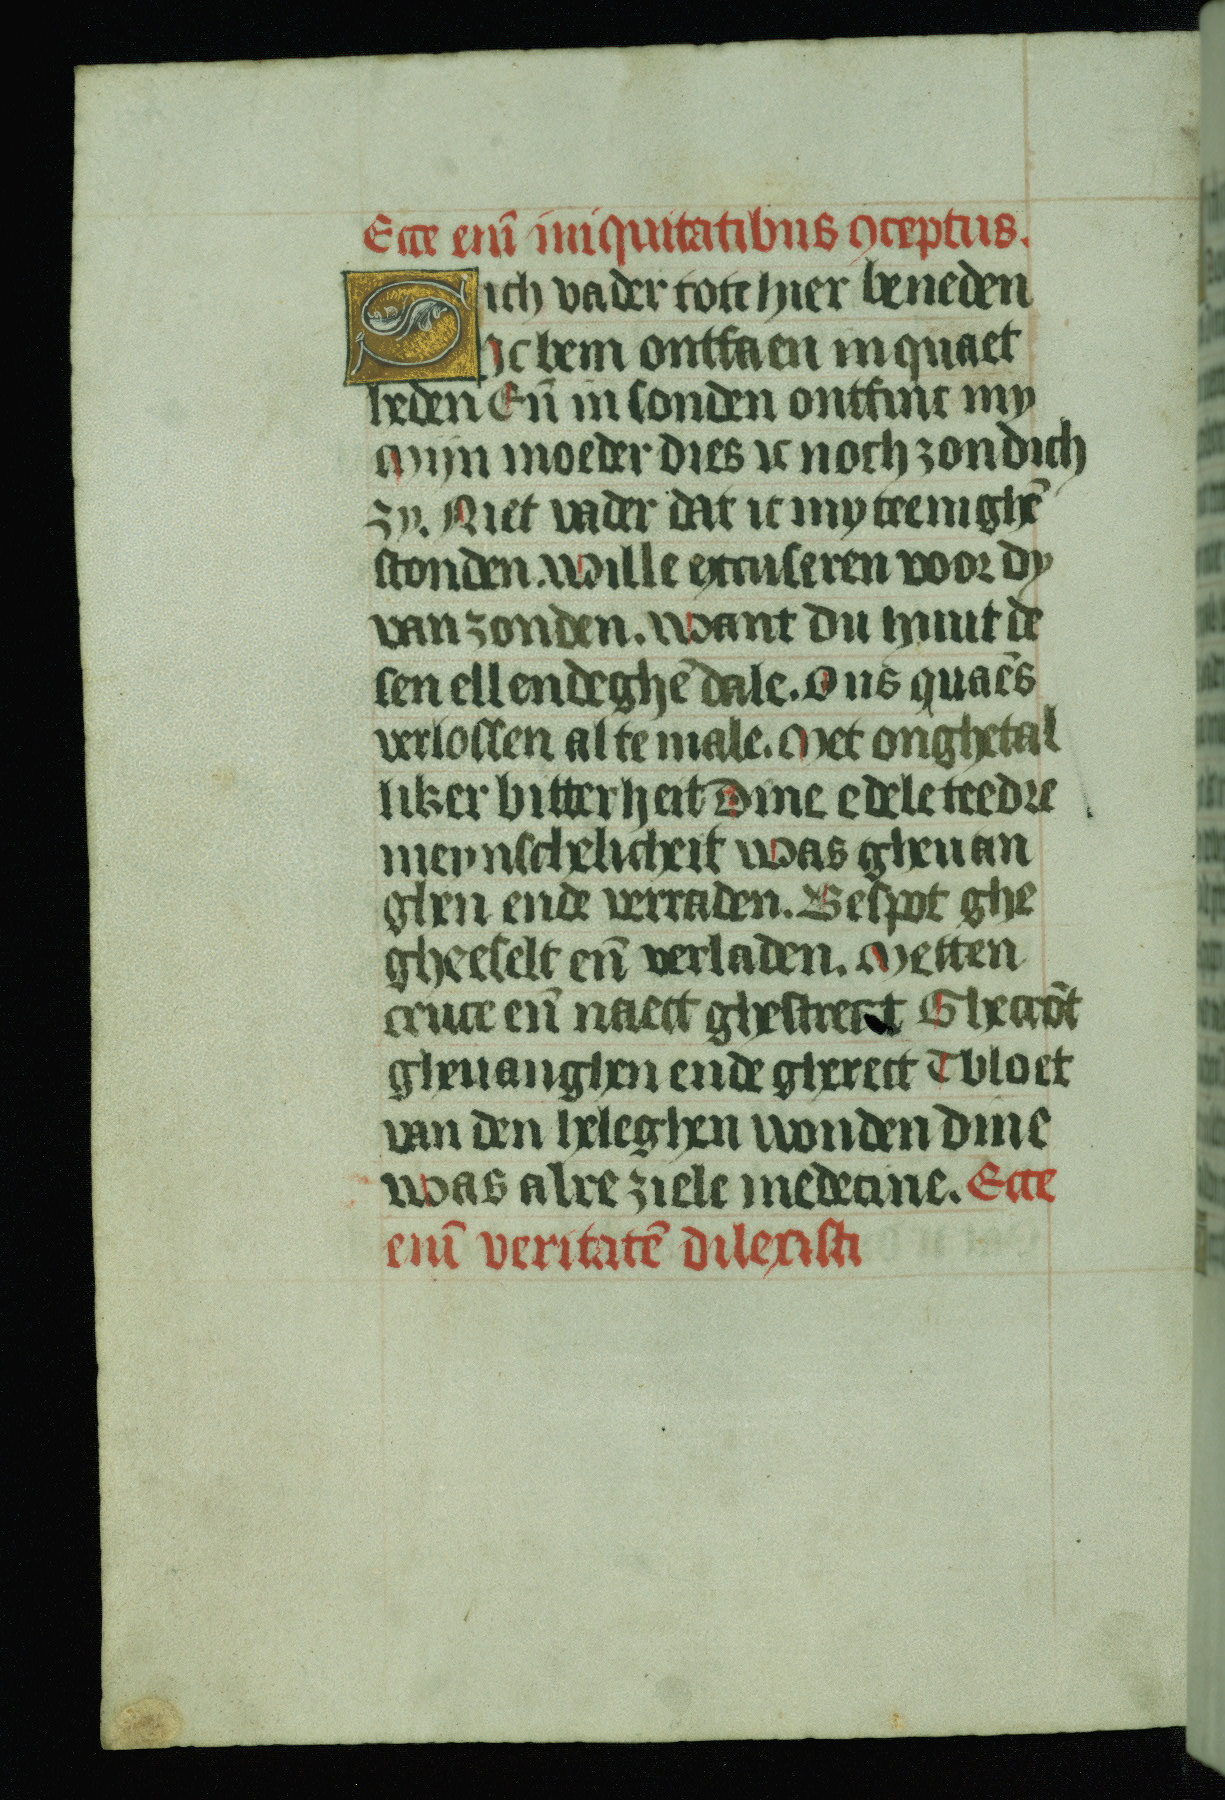 Ecce eni̅ iniquitatibus ꝯceptus.
Sich vader tote hier beneden
Ic bem ontfaen in quaet
heden En̅ in sonden ontfinc my
Mijn moeder dies ic noch zondich
zy. Niet vader dat ic my teenighe̅
stonden. Wille excuseren voor dy
van zonden. Want du huut de
sen ellendeghe̅ dale. Ons quae̅s
verlossen altemale. Met onghetal
liker bitterheit Dine edele teedre
meynschelicheit Was gheuan
ghen ende verraden. Bespot ghe
gheeselt en̅ verladen. Metten
cruce en̅ naect ghestrect Ghecro̅t
gheuanghen ende gherect Tbloet
van den heleghen wonden dine
Was alre ziele medecine. Ecce
eni̅ veritate̅ dilexisti